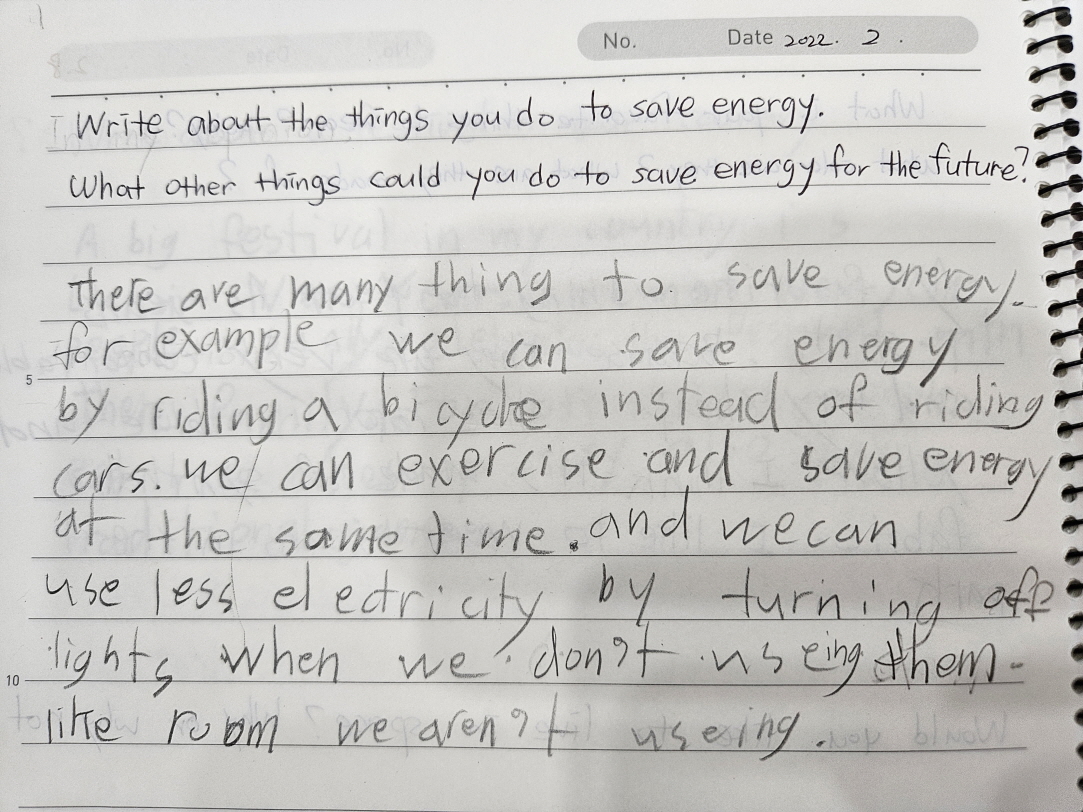 No. Date 2022. 2 .
Write about the things you do to save energy.
What other things could you do to save energy for the future?
There are many thing to save energy.
for example we can save energy
5
by riding a bicycle instead of riding
cars. we can exercise and save energy
at the same time. and we can
use less electricity by turning off
lights when we don't useing them.
10
like room we aren't useing.